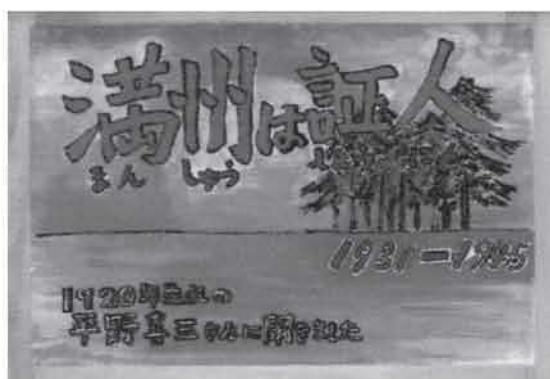 満州は証人
まんしゅう
1931－1945
1920年生まれの
平野喜三さんに聞きました